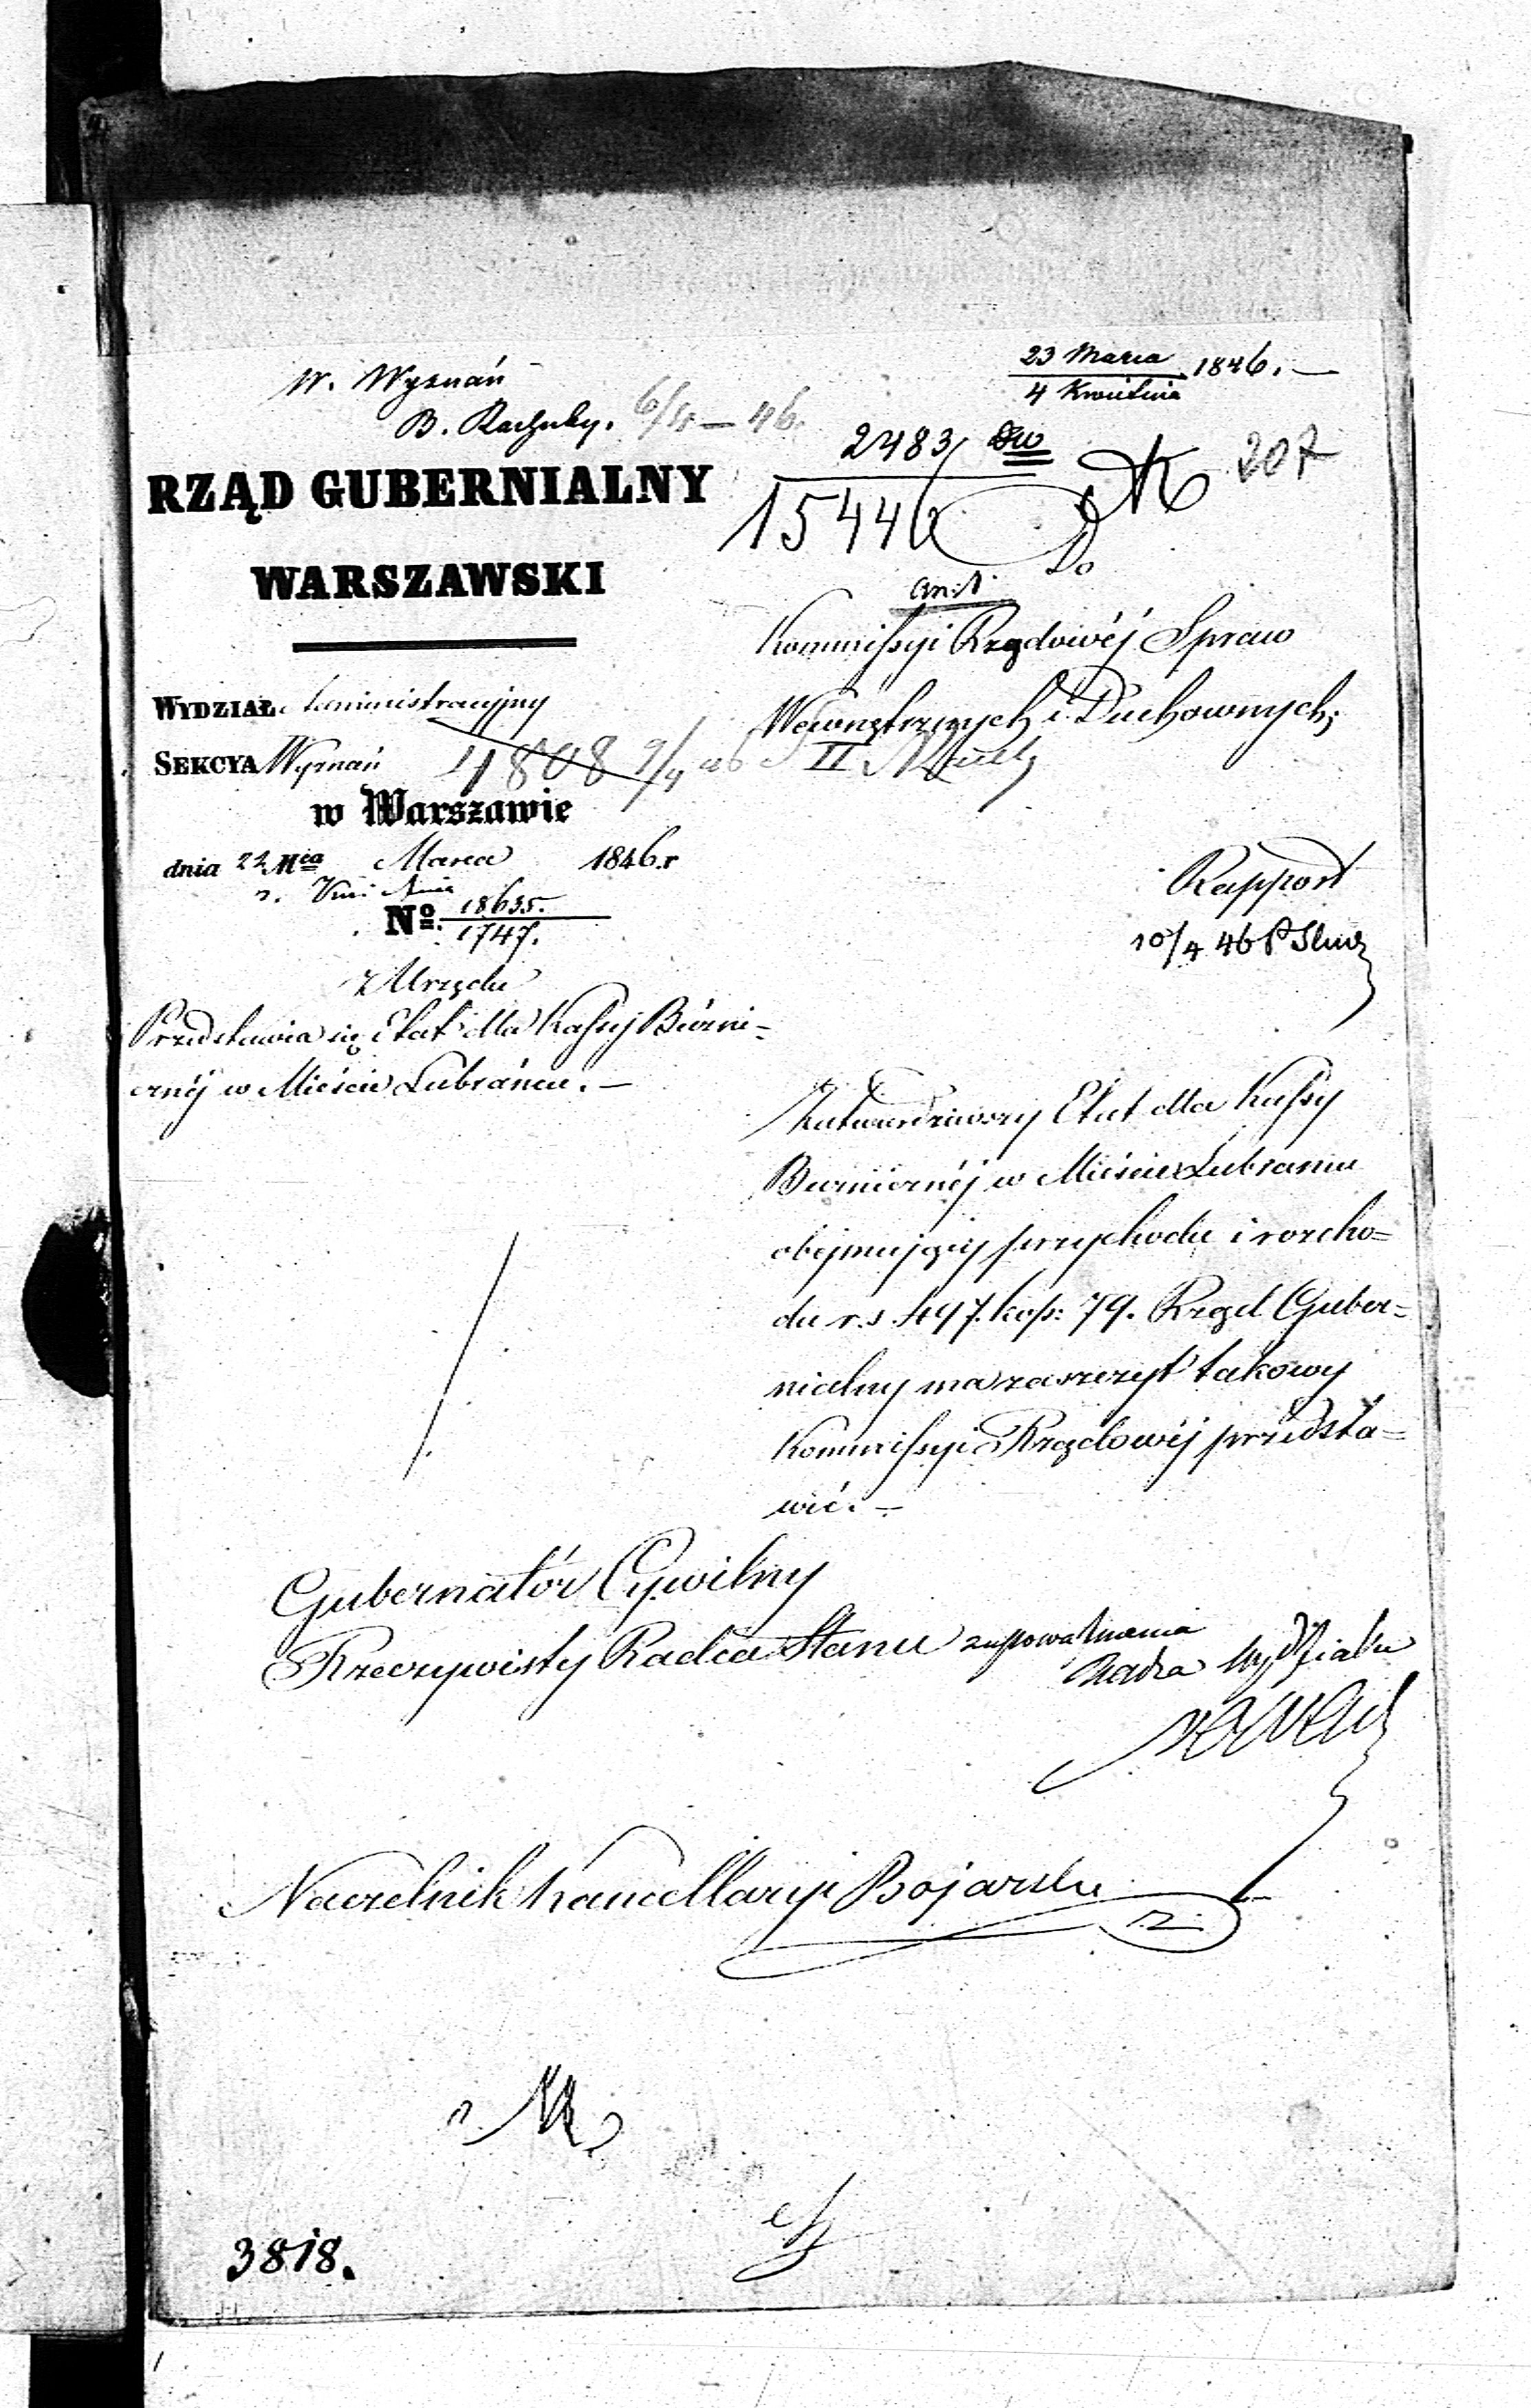 W. Wyznań
B. Rachuby. 6/4 — 46.
23 Marca
4 Kwietnia 1846. —
2483
15446
207
RZĄD GUBERNIALNY
WARSZAWSKI
Do
Kommissyi Rządowéj Spraw
Wewnętrznych i Duchownych;
WYDZIAŁ Administracyjny
SEKCYA Wyznań
4808 9/4 46
II
w Warszawie
dnia 22 Mca Marca 1846.r
3. Kwietnia
No. 18635.
1747.
z Urzędu
Przedstawia się Etat dla Kassy Bóźni-
cznéj w Mieście Lubrańcu. —
Rapport
10/4 46
Zatwierdziwszy Etat dla Kassy
Bużnicznéj w Mieście Lubrańcu
obejmujący przychodu i rozcho=
du r.s. 497. kop: 79. Rząd Guber=
nialny ma zaszczyt takowy
Kommissyi Rządowéj przedsta=
wić. —
Gubernatór Cywilny
Rzeczywisty Radca Stanu z upoważnienia
Radca Wydziału
Naczelnik Kancellaryi Bojarski
3818.